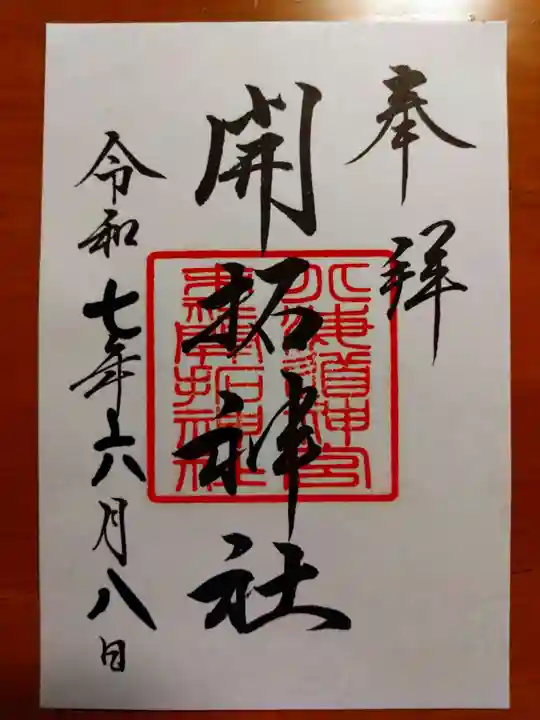 奉拜
開拓神社
令和七年六月八日
北海道神宮
末社開拓神社